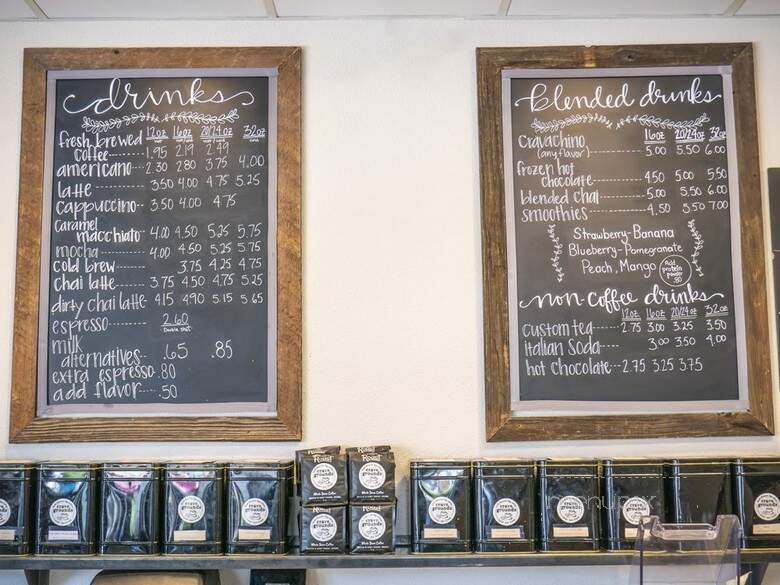 drinks
12oz 16oz 20/24 oz 32oz
fresh brewed
coffee 1.95 2.19 2.49
americano 2.30 2.80 3.75 4.00
latte 3.50 4.00 4.75 5.25
cappuccino 3.50 4.00 4.75
caramel
macchiato 4.00 4.50 5.25 5.75
mocha 4.00 4.50 5.25 5.75
cold brew 3.75 4.25 4.75
chai latte 3.75 4.50 4.75 5.25
dirty chai latte 4.15 4.90 5.15 5.65
espresso 2.60
double shot
milk
alternatives .65 .85
extra espresso .80
add flavor .50
blended drinks
16oz 20/24oz 32oz
cravachino 5.00 5.50 6.00
(any flavor)
frozen hot
chocolate 4.50 5.00 5.50
blended chai 5.00 5.50 6.00
smoothies 4.50 5.50 7.00
Strawberry-Banana
Blueberry-Pomegranate
Peach, Mango
Add
protein
powder
.80
non-coffee drinks
12oz 16oz 20/24oz 32oz
custom tea 2.75 3.00 3.25 3.50
italian soda 3.00 3.50 4.00
hot chocolate 2.75 3.25 3.75
Roast
Roast
crave
grounds
Whole Bean Coffee
menupix